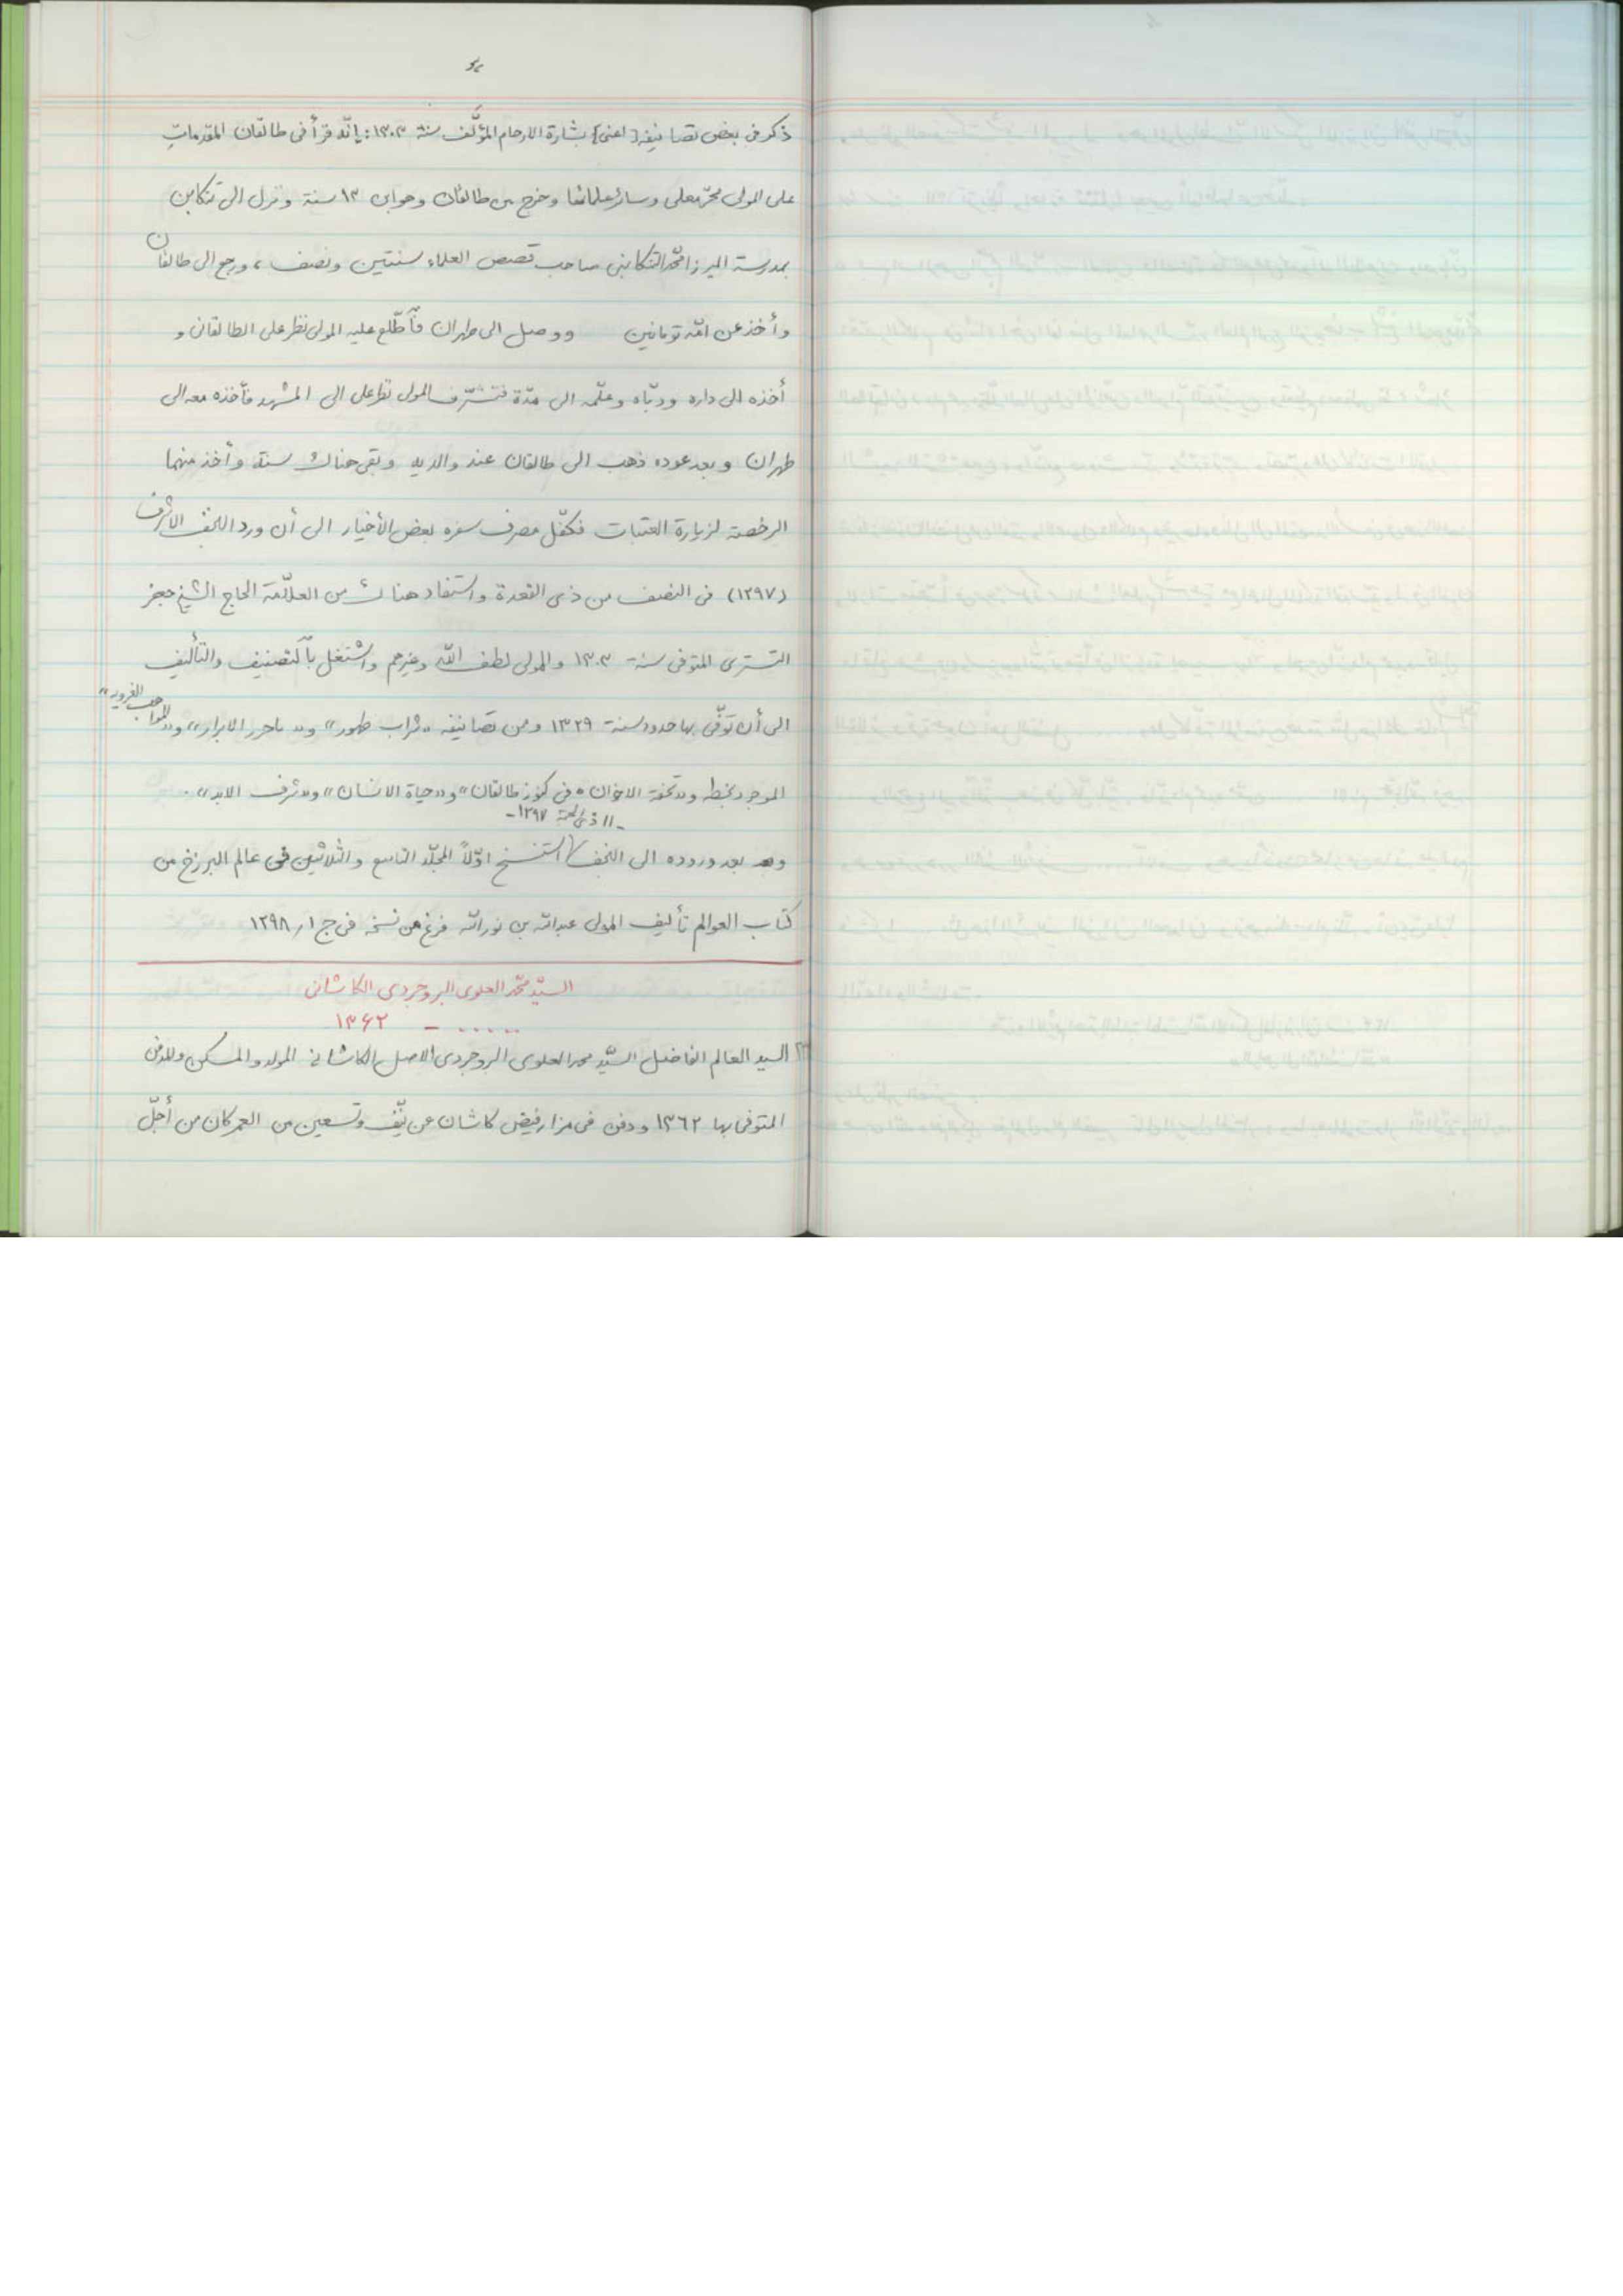 ذكر فى بعض تصانيفه [اعنى] بشارة الارحام المؤلَّف سنة ١٣٠٣: بانّه قرأ فى طالقان المقدمات
على المولى محمّد على وسائر علمائها وخرج من طالقان وهو ابن ١٣ سنة ونزل الى تنكابن
بمدرسة الميرزا محمّد التنكابنى صاحب قصص العلماء سنتين ونصف، ورجع الى طالقان
وأخذ عن امّه تومانين ووصل الى طهران فأطّلع عليه المولى نظر على الطالقانى و
أخذه الى داره وربّاه وعلّمه الى مدّة فتشرّف المولى نظر على الى المشهد فأخذه معه الى
طهران وبعد عوده ذهب الى طالقان عند والديه وبقى هناك سنة وأخذ منهما
الرخصة لزيارة العتبات فكفّل مصرف سفره بعض الأخيار الى أن ورد النجف الاشرف
(١٢٩٧) فى النصف من ذى القعدة واستفاد هناك من العلّامة الحاج الشيخ جعفر
التسترى المتوفى سنة ١٣٠٣ والمولى لطف الله وغيرهم واشتغل بالتصنيف والتأليف
الى أن توفّى بها حدود سنة ١٣٢٩ ومن تصانيفه «شراب طهور» و« الابرار» و«المواهب الغروية»
الموجود بخطه و«تحفة الاخوان» فى كنوز طالقان» و«حياة الانسان» و«شرف الابد».
- ١١ ذى الحجة ١٢٩٧ -
بعد وروده الى النجف استنسخ اوّلاً المجلّد التاسع والثلاثين فى عالم البرزخ من
كتاب العوالم تأليف المولى عبدالله بن نورالله فرغ من نسخه فى ج ١ / ١٢٩٨
السيّد محمّد العلوى البروجردى الكاشانى
..... – ١٣۶٢
السيد العالم الفاضل السيّد محمد العلوى البروجردى الاصل الكاشانى المولد والمسكن والمدفن
المتوفى بها ١٣٦٢ ودفن فى مزار فيض كاشان عن نيّف وتسعين من العمر كان من أجلّ